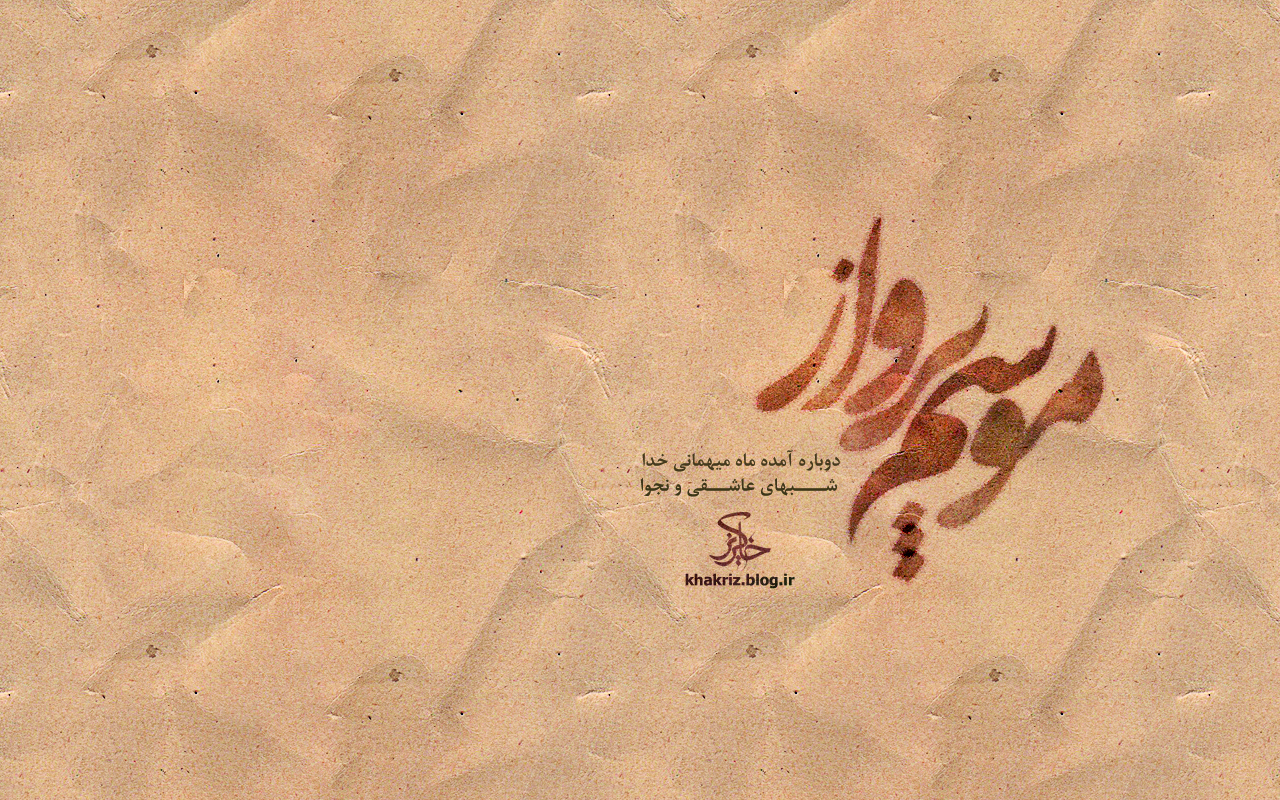 موسم پرواز
دوباره آمده ماه میهمانی خدا
شبهای عاشقی و نجوا
خاکریز
khakriz.blog.ir